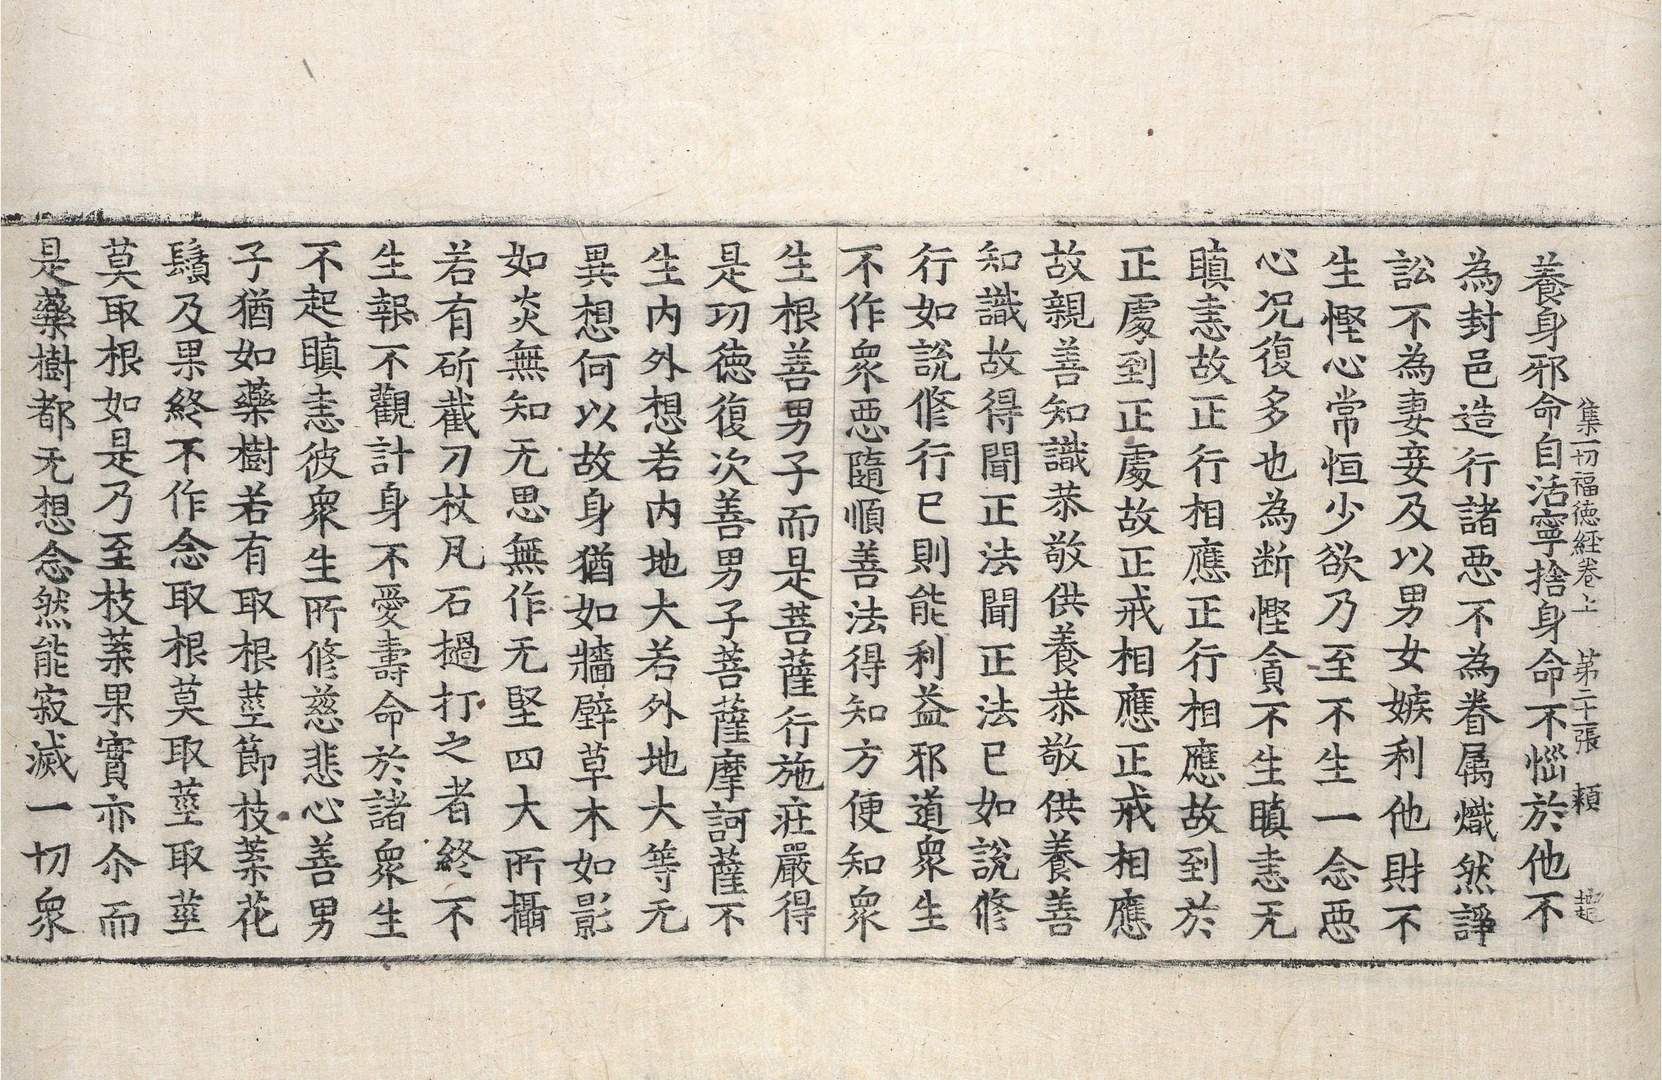 集一切福徳経卷上 第二十張 頼
養身邪命自活寧捨身命不惱於他不
為封邑造行諸惡不為眷属熾然諍
訟不為妻妾及以男女嫉利他財不
生慳心常恒少欲乃至不生一念惡
心況復多也為断慳貪不生瞋恚无
瞋恚故正行相應正行相應故到於
正處到正處故正戒相應正戒相應
故親善知識恭敬供養恭敬供養善
知識故得聞正法聞正法已如說修
行如說修行已則能利益邪道衆生
不作衆惡隨順善法得知方便知衆
生根善男子而是菩薩行施莊嚴得
是功徳復次善男子菩薩摩訶薩不
生内外想若内地大若外地大等无
異想何以故身猶如牆壁草木如影
如炎無知无思無作无堅四大所攝
若有斫截刀杖凡石撾打之者終不
生報不觀計身不愛壽命於諸衆生
不起瞋恚彼衆生所修慈悲心善男
子猶如藥樹若有取根莖節枝葉花
鬚及果終不作念取根莫取莖取莖
莫取根如是乃至枝葉果實亦尒而
是藥樹都无想念然能寂滅一切衆